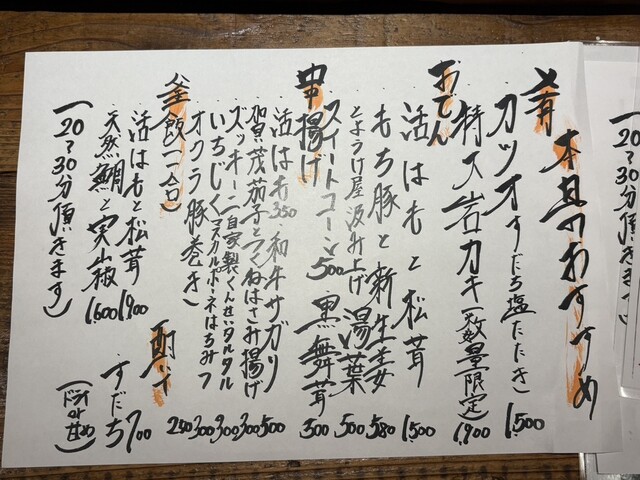 本日のおすすめ
肴
カツオすだち塩たたき 1,500
特大岩カキ(数量限定) 1,900
おでん
活はもと松茸 1,500
もち豚と新生姜 580
とようけ屋汲み上げ湯葉 500
串揚げ
スイートコーン 500 黒舞茸 300
活はも 350 和牛サガリ 500
賀茂茄子とつくねはさみ揚げ 300
ズッキーニ自家製くんせいタルタル 300
いちじくマスカルポーネはちみつ 300
オクラ豚巻き 240
釜飯(一合)
活はもと松茸 1,900
天然鯛と実山椒 1,600
(20〜30分頂きます)
酎ハイ
すだち 700
(ドライor甘め)
20〜30分頂きます